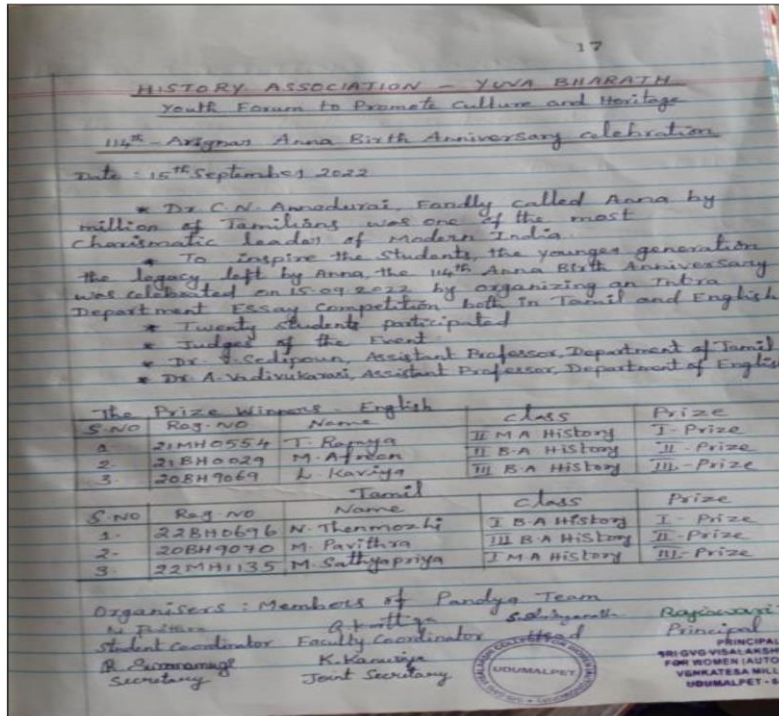 17
HISTORY ASSOCIATION - YUVA BHARATH
Youth Forum to Promote Culture and Heritage
114th - Arignar Anna Birth Anniversary celebration
Date : 15th September 2022
* Dr C.N. Annadurai, Fandly called Anna by
million of Tamilians was one of the most
Charismatic leader of Modern India.
* To inspire the students, the younger generation
the legacy left by Anna, the 114th Anna Birth Anniversary
was celebrated on 15.09.2022 by organizing an Intra
Department Essay Competition both in Tamil and English
* Twenty Students participated
* Judges of the Event
* Dr. Assistant Professor, Department of Tamil
* Dr. A. Vadivukarasi, Assistant Professor, Department of English
The Prize Winners - English
S.NO Reg.NO Name class Prize
21MH0554 T. Ramya II M A History I - Prize
2. 21BH0029 M. Afreen II B.A History II - Prize
3. 20BH9069 L. Kaviya III B.A History III - Prize
Tamil
S.NO Reg.NO Name class Prize
1. 22BH0696 N. Thenmozhi I B.A History I - Prize
2. 20BH9070 M. Pavithra III B.A History II - Prize
3. 22MH1135 M. Sathyapriya I M A History III - Prize
Organisers : Members of Pandya Team
Rajeswari
Student Coordinator Faculty Coordinator Head Principal
PRINCIPAL
SRI GVG VISALAKSH
FOR WOMEN (AUTO
VENKATESA MILL
UDUMALPET - 6
K. Kanusiya
Secretary Joint Secretary
UDUMALPET